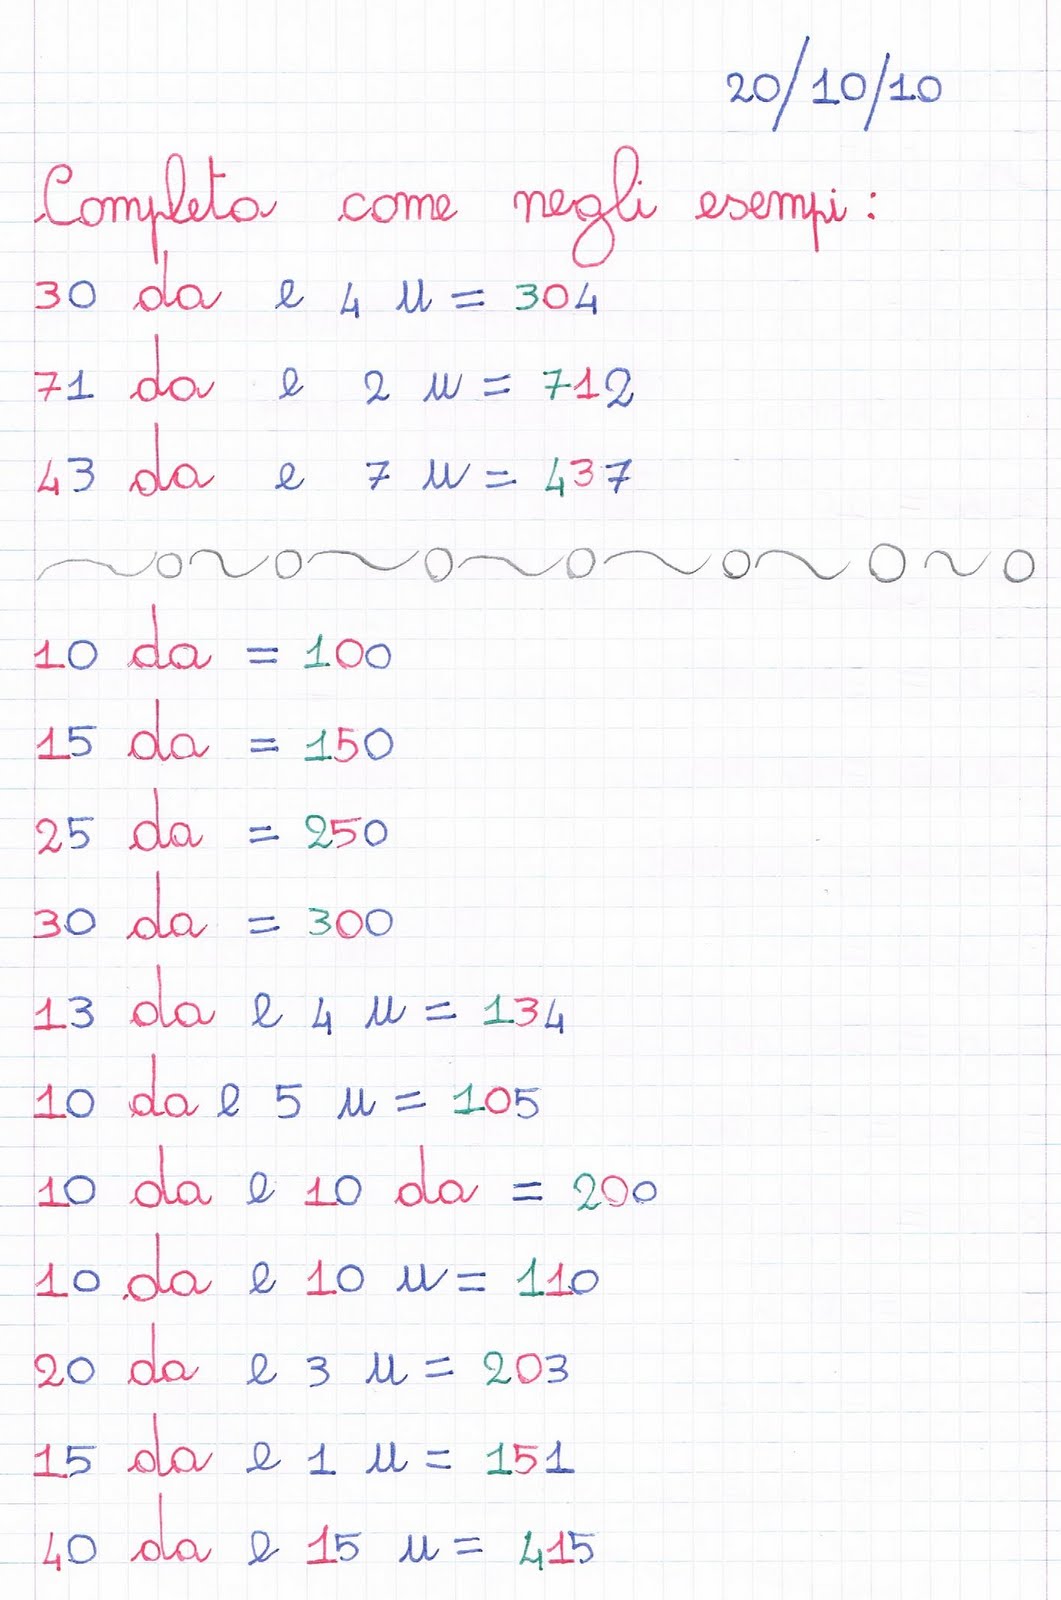 20/10/10
Completa come negli esempi:
30 da e 4 u = 304
71 da e 2 u = 712
43 da e 7 u = 437
10 da = 100
15 da = 150
25 da = 250
30 da = 300
13 da e 4 u = 134
10 da e 5 u = 105
10 da e 10 da = 200
10 da e 10 u = 110
20 da e 3 u = 203
15 da e 1 u = 151
40 da e 15 u = 415